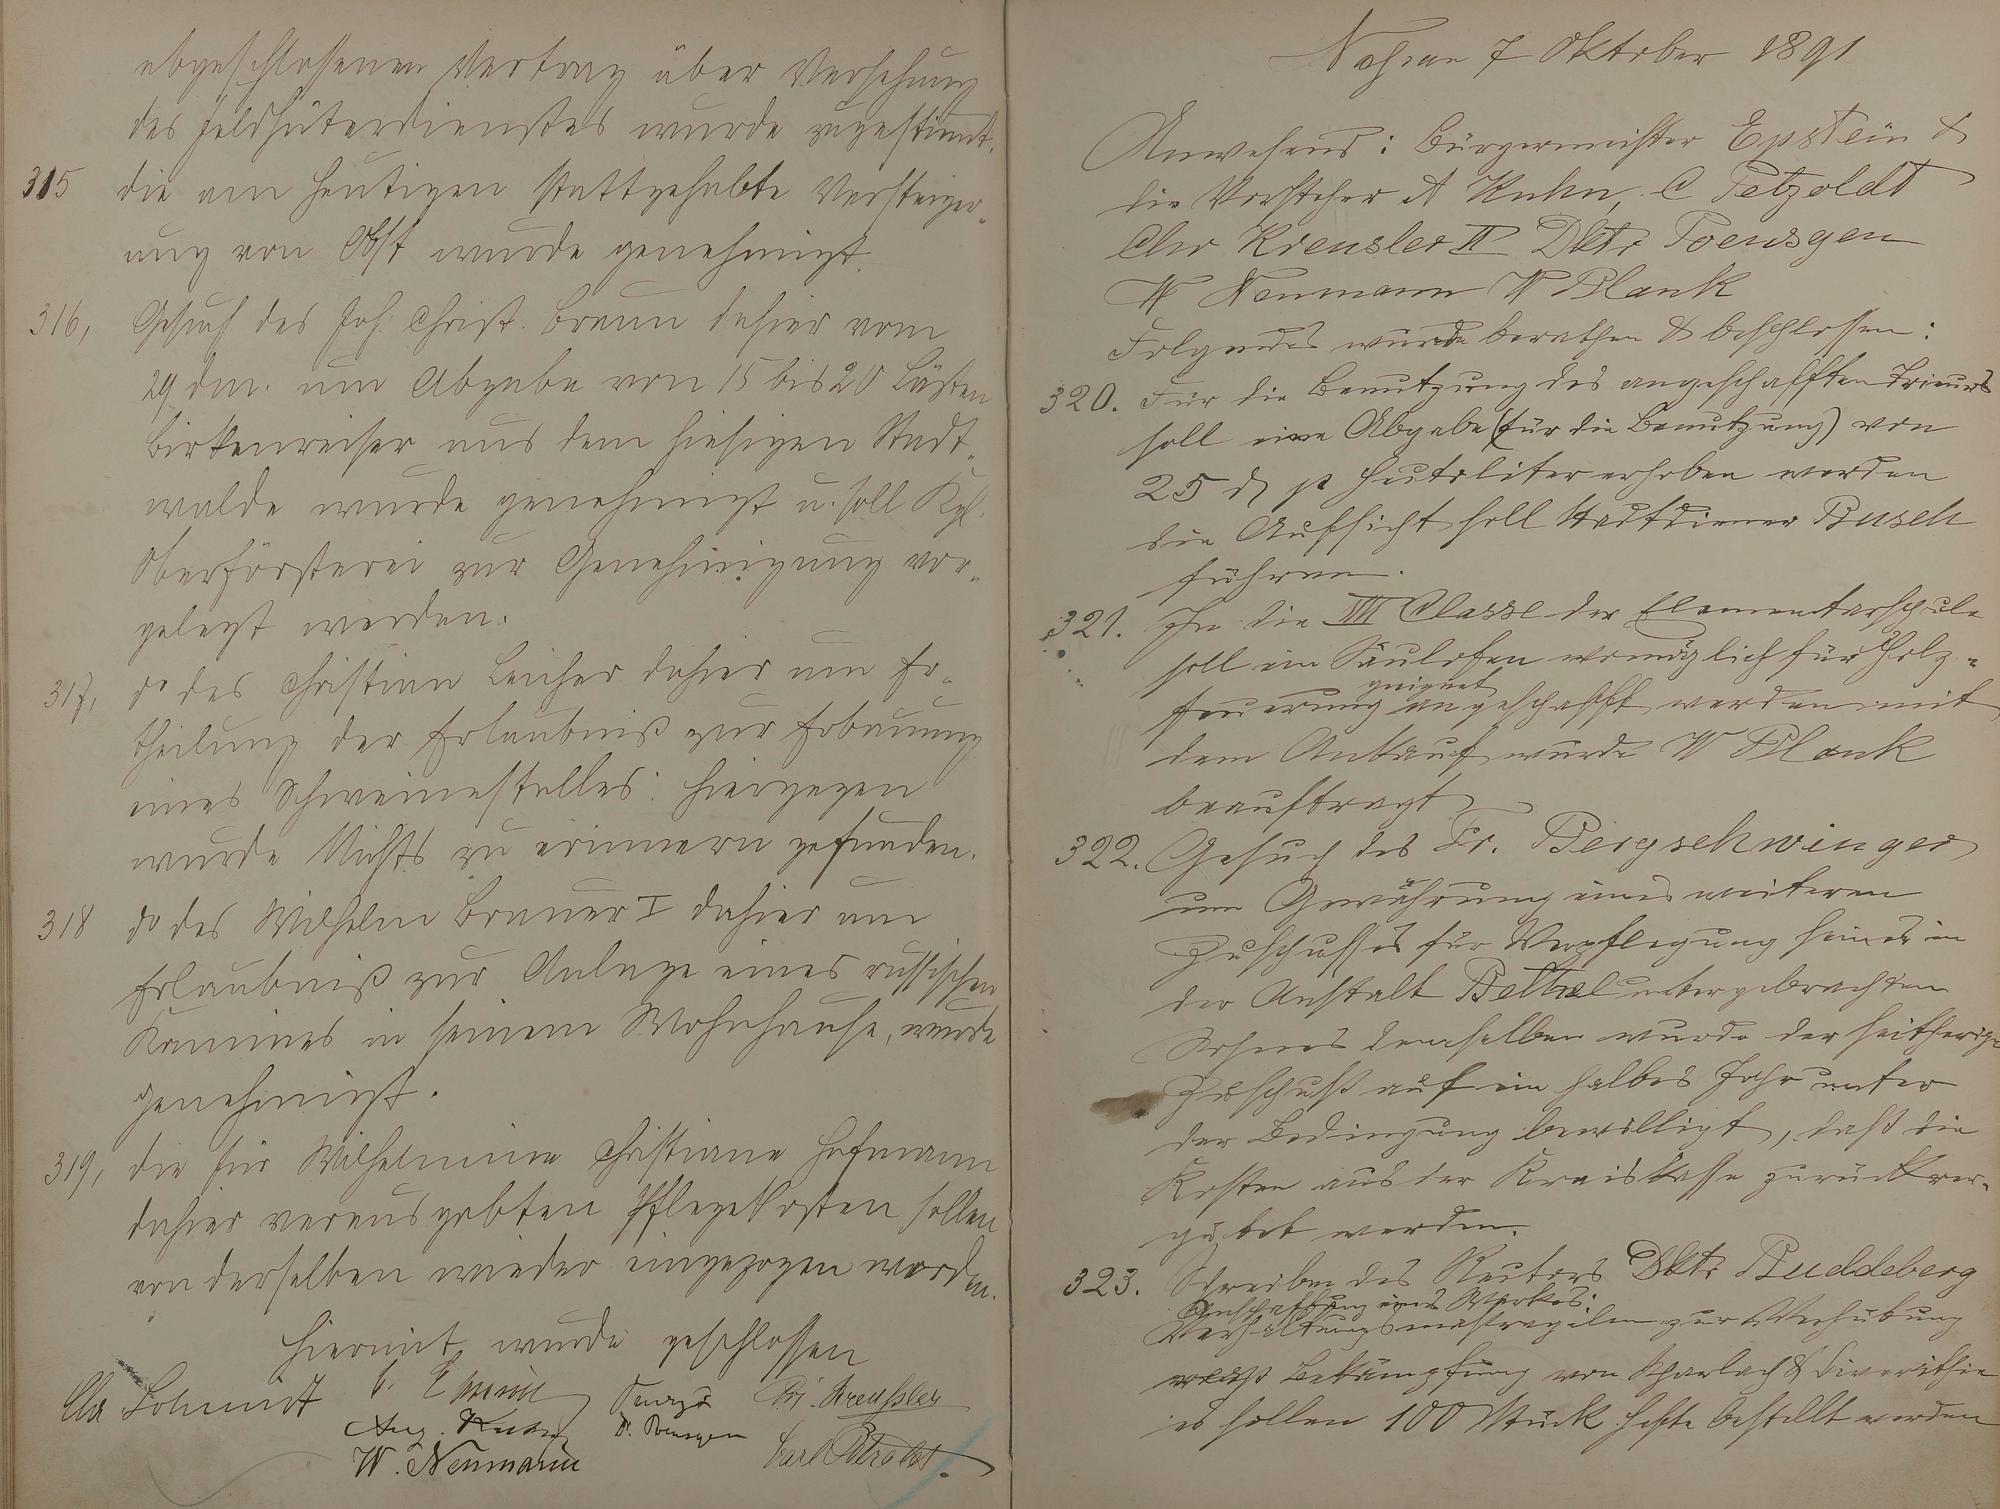 abgeschlossenen Vertrag über Versehung
des Feldhüterdienstes wurde zugestimmt.
315 die am heutigen stattgehabte Versteiger-
ung von Obst wurde genehmigt.
316, Gesuch des Joh. Christ. Braun dahier vom
29 dm. um Abgabe von 15 bis 20 Lästen
Birkenreiser aus dem hiesigen Stadt-
walde wurde genehmigt u. soll Kgl.
Oberförsterei zur Genehmigung vor-
gelegt werden.
317, do des Christian Leicher dahier um Er-
theilung der Erlaubniß zur Erbauung
eines Schweinestalles: hiergegen
wurde Nichts zu erinnern gefunden.
318 do des Wilhelm Brauer I dahier um
Erlaubniß zur Anlage eines russischen
Kamines in seinem Wohnhause, wurde
genehmigt.
319, die für Wilhelmine Christiane Hofmann
dahier verausgabten Pflegekosten sollen
von derselben wieder eingezogen werden.
Hiermit wurde geschlossen
Chr Schmidt
Aug. Kuhn Dr. Poensgen
W. Neumann Carl Petzoldt.
7 Oktober 1891
Anwesend: Bürgermeister Epstein &
die Vorsteher A Kuhn, C Petzoldt
Chr Kreusler II Dktr Poensgen
W Neumann W Plank
Folgendes wurde berathen & beschlossen:
320. Für die Benutzung des angeschafften Trieurs
soll eine Abgabe (für die Benutzung) von
25 d p Hectoliter erhoben werden
die Aufsicht soll Stadtdiener Busch
führen.
321. In die VIII Classe der Elementarschule
soll ein Säulofen womöglich für Holz-
feuerung geeignet angeschafft werden mit
dem Ankauf wurde W Plank
beauftragt
322. Gesuch des Fr. Bergschwinger
um Gewährung eines weiteren
Zuschusses für Verpflegung seines in
der Anstalt Bethel untergebrachten
Sohnes demselben wurde der seitherige
Zuschuß auf ein halbes Jahr unter
der Bedingung bewilligt, daß die
Kosten aus der Kreiskasse zurückver-
gütet werden.
323. Schreiben des Rectors Dktr Buddeberg
Anschaffung eines Werkes:
Verhaltungsmaßregeln zur Verhütung
Bekämpfung von Scharlach & Diverithie
es sollen 100 Stück Hefte bestellt werden